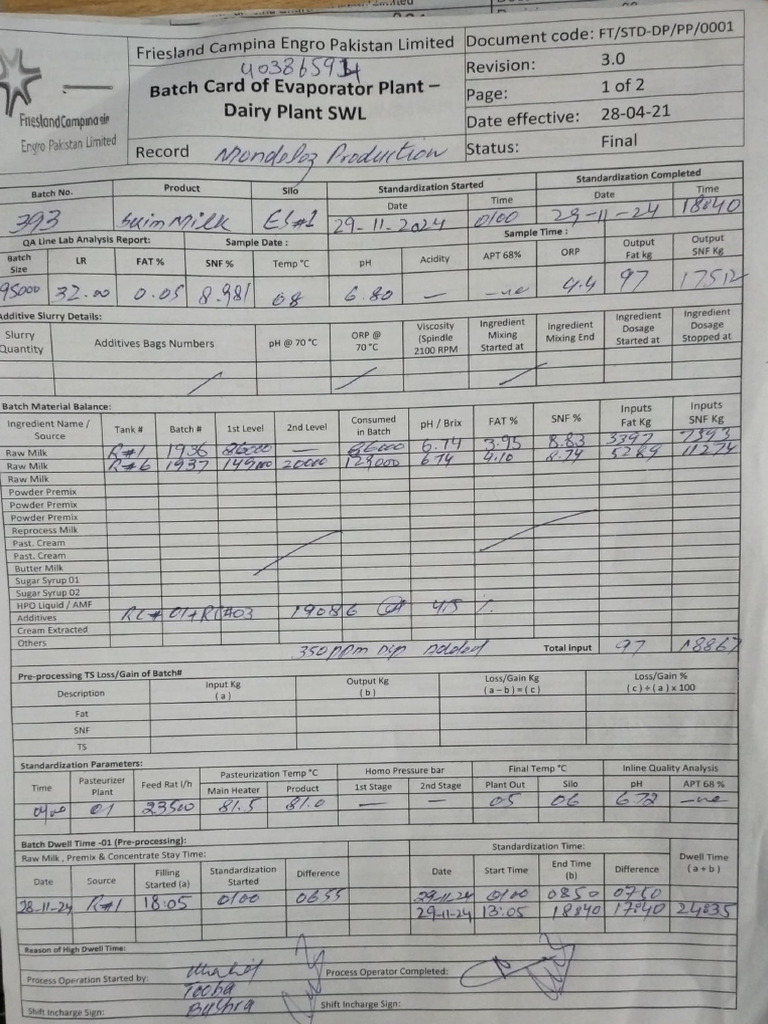 Friesland Campina Engro Pakistan Limited
Document code: FT/STD-DP/PP/0001
Batch Card of Evaporator Plant –
Dairy Plant SWL
Revision: 3.0
Page: 1 of 2
Date effective: 28-04-21
FrieslandCampina
Engro Pakistan Limited
Record Mondelez Production
Status: Final
Batch No. Product Silo Standardization Started Standardization Completed
Date Time Date Time
393 Skim Milk ES#1 29-11-2024 0100 29-11-24 18:40
QA Line Lab Analysis Report: Sample Date : Sample Time :
Batch Size LR FAT % SNF % Temp °C pH Acidity APT 68% ORP Output Fat kg Output SNF Kg
95000 32.00 0.05 8.981 08 6.80 — -ve 4.4 97 17512
Additive Slurry Details:
Slurry Quantity Additives Bags Numbers pH @ 70 °C ORP @ 70 °C Viscosity (Spindle 2100 RPM Ingredient Mixing Started at Ingredient Mixing End Ingredient Dosage Started at Ingredient Dosage Stopped at
Batch Material Balance:
Ingredient Name / Source Tank # Batch # 1st Level 2nd Level Consumed in Batch pH / Brix FAT % SNF % Inputs Fat Kg Inputs SNF Kg
Raw Milk R#1 1936 86000 — 86000 6.74 3.95 8.83 3397 7593
Raw Milk R#6 1937 149000 20000 129000 6.74 4.10 8.74 5289 11274
Raw Milk
Powder Premix
Powder Premix
Powder Premix
Reprocess Milk
Past. Cream
Past. Cream
Butter Milk
Sugar Syrup 01
Sugar Syrup 02
HPO Liquid / AMF
Additives RC# 01+RC#03 19086 @ 45 %
Cream Extracted
Others 350 ppm Added Total input 97 18867
Pre-processing TS Loss/Gain of Batch#
Description Input Kg ( a ) Output Kg ( b ) Loss/Gain Kg ( a – b ) = ( c ) Loss/Gain % ( c ) ÷ ( a ) x 100
Fat
SNF
TS
Standardization Parameters:
Time Pasteurizer Plant Feed Rat l/h Pasteurization Temp °C Homo Pressure bar Final Temp °C Inline Quality Analysis
Main Heater Product 1st Stage 2nd Stage Plant Out Silo pH APT 68 %
01 23500 81.5 81.0 — — 05 06 6.72 -ve
Batch Dwell Time -01 (Pre-processing):
Raw Milk , Premix & Concentrate Stay Time: Standardization Time: Dwell Time ( a + b )
Date Source Filling Started (a) Standardization Started Difference Date Start Time End Time (b) Difference
28-11-24 R#1 18:05 0100 0655 29-11-24 0100 0850 0750
29-11-24 13:05 18:40 17:40 24:35
Reason of High Dwell Time:
Process Operation Started by: Process Operator Completed:
Shift Incharge Sign: Bushra Shift Incharge Sign: